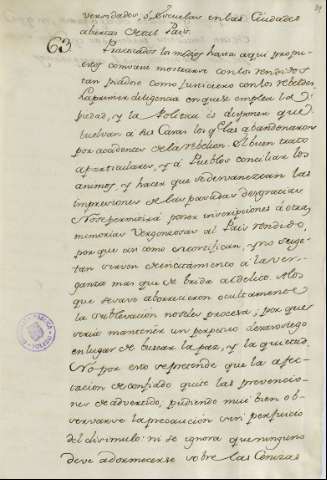 vecindades, ó Escuelas en las Ciudades
abiertas de tal Pais.
63. Practicados los medios hasta aqui propu-
estos conviene mostrarse con los rendidos
tan piadoso como justiciero con los rebeldes
La primer diligencia en que se emplea la Pi
edad, y la Politica es disponer que
buelvan a sus Casas los q.e las abandonaron
por accidente de la rebelion. El buen trato
a particulares, y á Pueblos conciliar los
animos, y hacer que se desvanezcan las
impresiones de las pasadas desgracias
No se permitirá poner inscripciones ú otras
memorias vergonzosas al Pais rendido,
por que asi como mortifican, y no suje-
tan sirven de incitamento á la ven-
ganza mas que de brida al delito. A los
que se sabe abrazaron ocultamente
la sublevacion no se les procesa, por que
seria mantener un perpetuo desasosiego
en lugar de buscar la paz, y la quietud.
No por esto se pretende que la afec-
tacion de confiado quite las prevencio-
nes de advertido, pudiendo mui bien ob-
servarse la precaucion sin perjuicio
del disimulo: ni se ignora que ninguno
debe adormecerse sobre las Cenizas